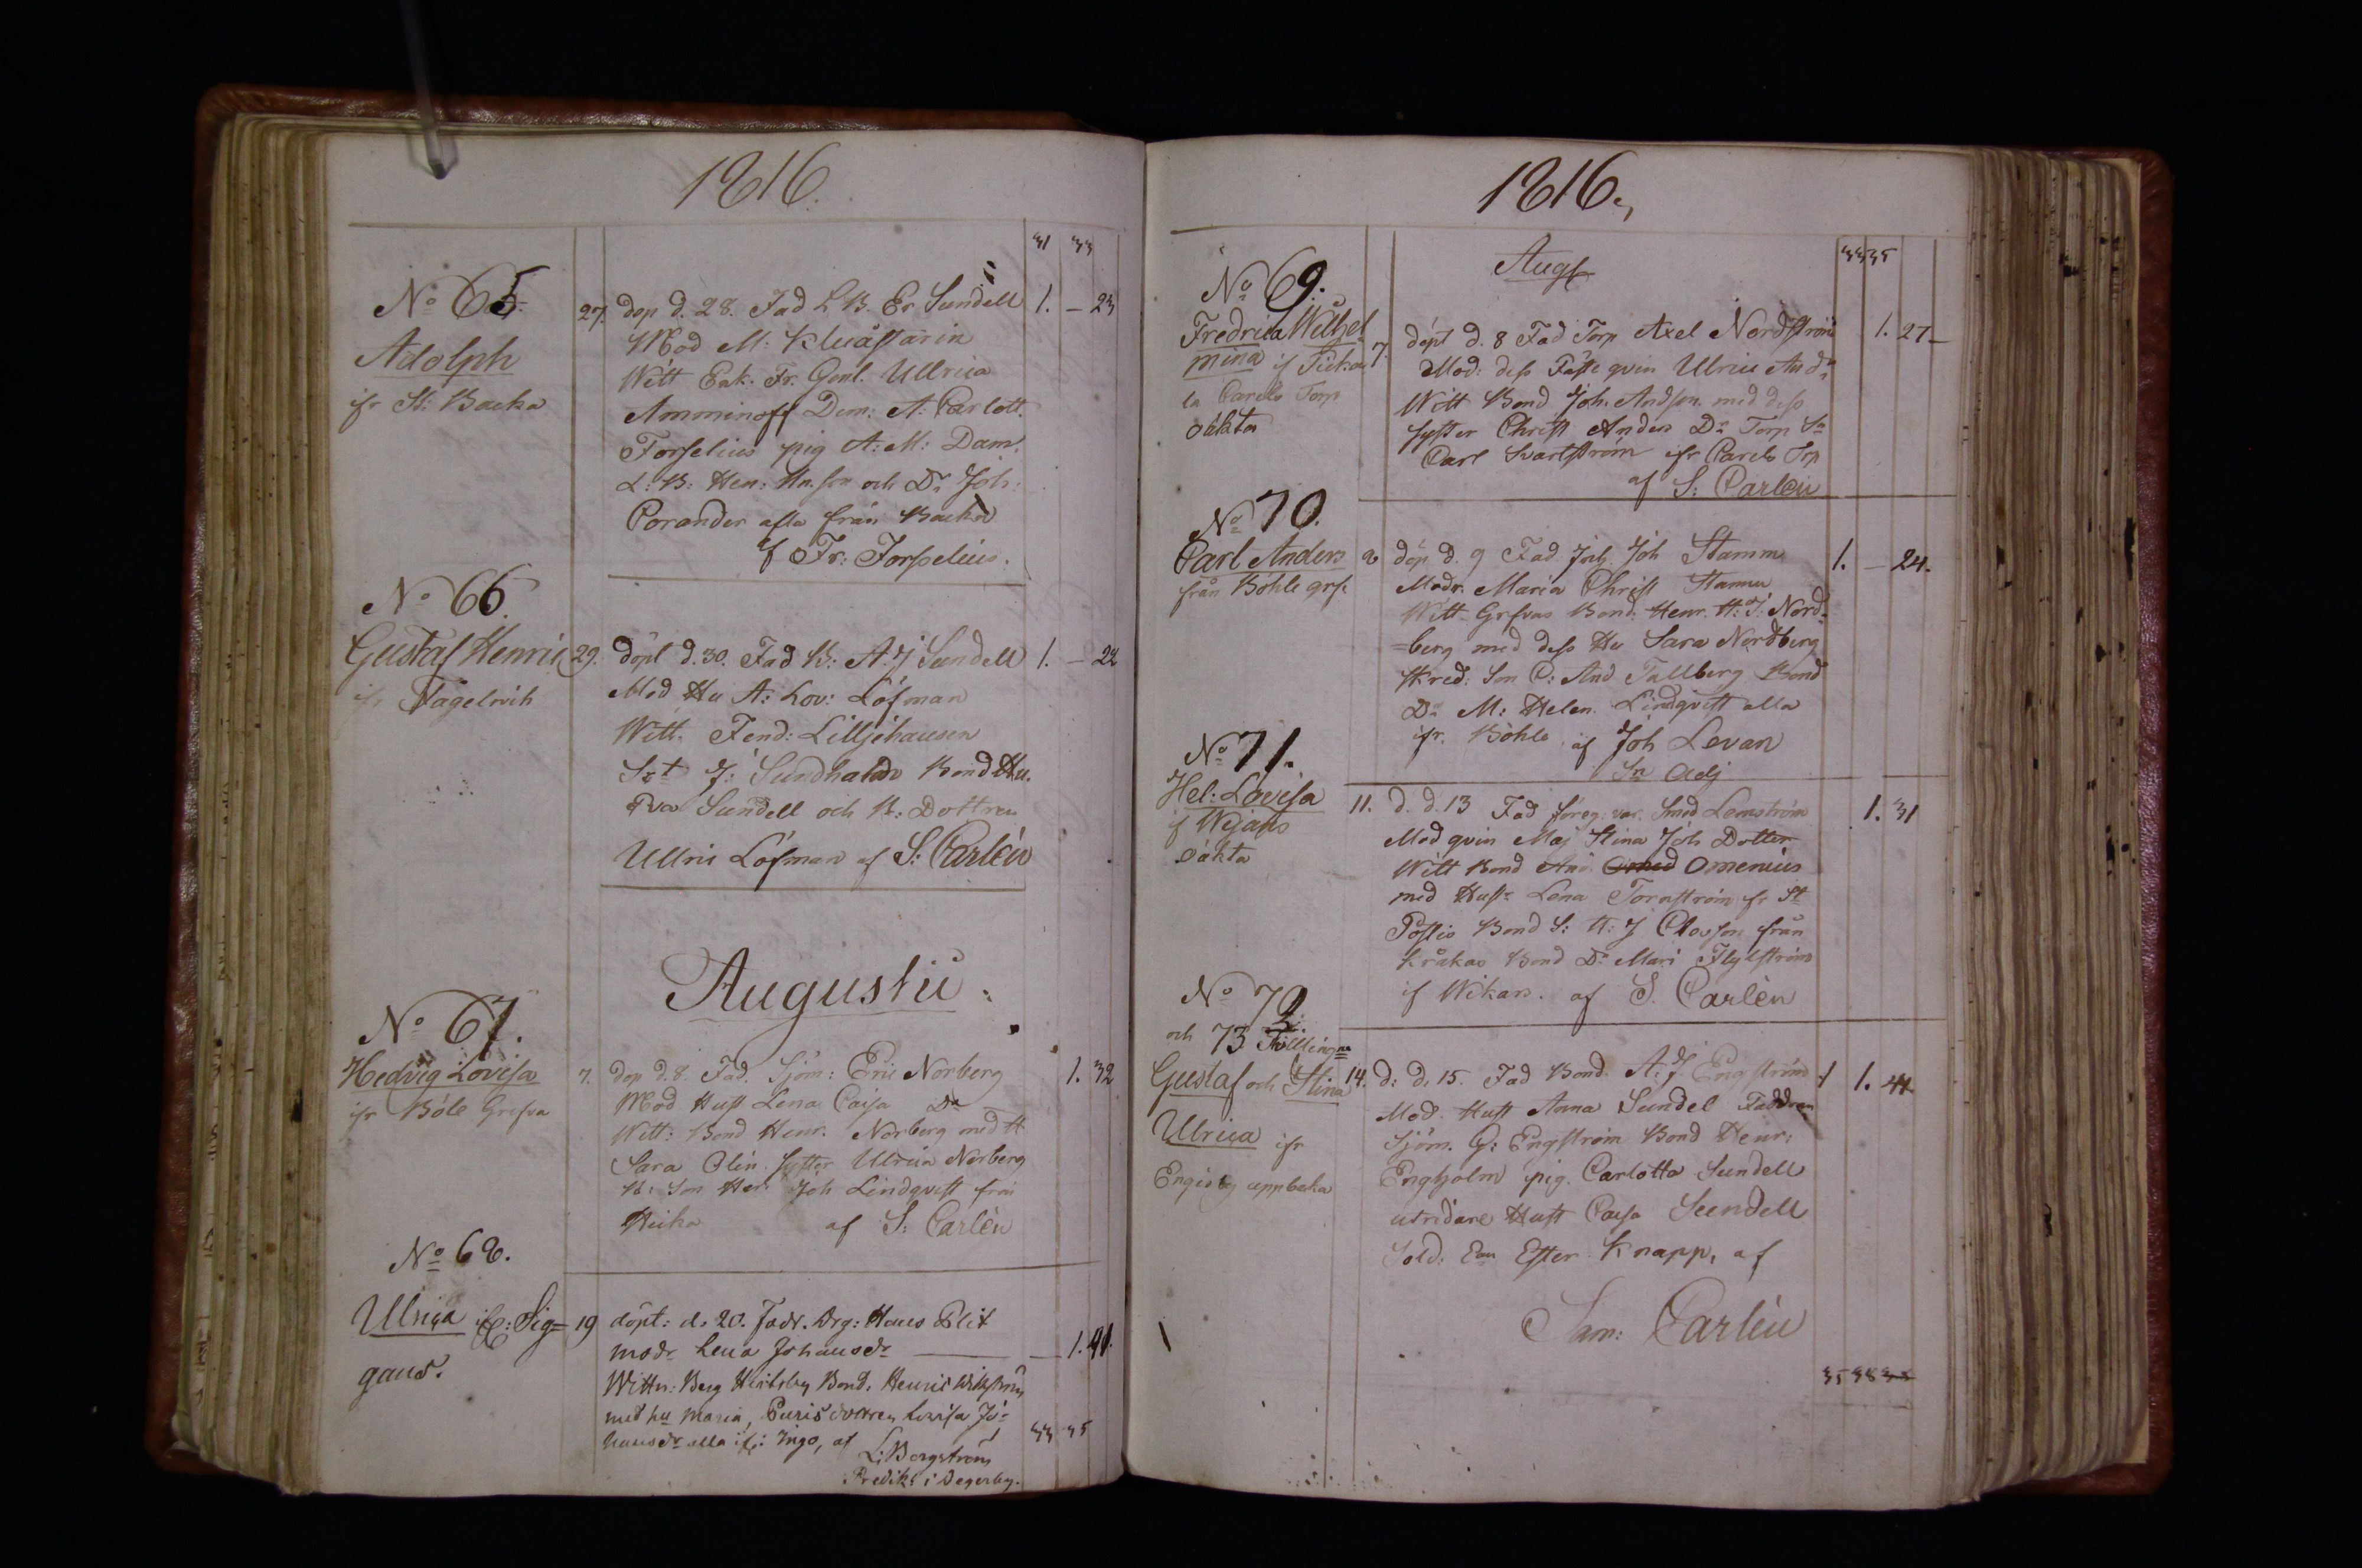 1816.
31 33
No 65.
Adolph
ifr St: Backa
27. döp d. 28. Fad L B. Er Sundell 1. – 23
Mod M: Kluästarin
Witt Enk. Fr. Genl. Ullrica
Amminoff Dem: A: Carlott.
Forselius pig A: M: Dam.
L: B: Hen: Hn.son och Dr Joh:
Corander alla från Backa
af Fr: Forselius.
No 66.
Gustaf Henric
ifr Fagelvik
29. döpt d. 30. Fad B: A. J Sundell 1. – 22
Mod Hu A: Lov: Löfman
Witt. Fend: Lilljehausen
J: Bond Hu.
Eva Sundell och B: Dottren
Ullric Löfman af S: Carlén
Augustii.
No 67.
Hedvig Lovisa
ifr Böle Grefva
7. dop d. 8. Fad. Sjöm: Eric Norberg 1. 32
Mod Hust Lena Caisa Dr
Witt: Bond Henr. Norberg med H.
Sara Olin. syster Ulrica Norberg
B: Son Hen Joh Lindqvist från
af S: Carlén
No 68.
Ulrica ifr: Sig=
gans.
19 döpt: d. 20. Fadr. Drg: Hans Blit
modr Lena Johansdr — 1. 41.
Wittn: Berg Bond. Henric Wikström
med hu Maria, dottren Lovisa Jo=
hansdr alla ifr: Ingo, af
33 35
L: Bergström
Predik: i Degerby.
1816.
Aug
33 35
No 69.
Fredrica Wilhel=
mina if
la Carels Torp
oäkta
7. döpt d. 8 Fad Torp Axel Nordström 1. 27 –
Mod: dess Fäste qvin Ulric And
Witt Bond Joh. Andson med dess
syster Christ Anders Dr Torp Sn
Carl Svartström ifr Carels Trp
af S: Carlén
No 70.
Carl Anders
från Böhle grf.
8 döp d. 9 Fad Joh Stamm 1. – 24.
Modr. Maria Christ Stamm
Witt. Grefvas Bond: Henr. H: S. Nord=
=berg med dess Hu Sara Nordberg
Skred: Son C: And Tallberg Bond
Dr M: Helen. Lindqvist alla
ifr. Böhle af Joh Levan
Sn Adj
No 71.
Hel: Lovisa
if Wejans
oäkta
11. d. d. 13 Fad föreg. var. smed Lemström 1. 31
Mod qvin Maj Stina Joh Dotter
Witt Bond And Omenius
med Hustr Lena Tornström fr St
Postis Bond S: A: J Classon från
Kråkas Bond Dr Mari Flykström
if Wikars. af S. Carlén
No 72
och 73 Tvillingna
Gustaf och Stina
Ulrica ifr
Engisby uppbacka
14. d: d. 15. Fad Bond. A: J. Engström 1. 41
Mod. Hust Anna Sundel Faddran
Sjöm. G: Engström Bond Henr:
Engholm pig. Carlotta Sundell
utridare Hust Caisa Sundell
Sold: Ester Knapp, af
Sam: Carlén
35 38 33